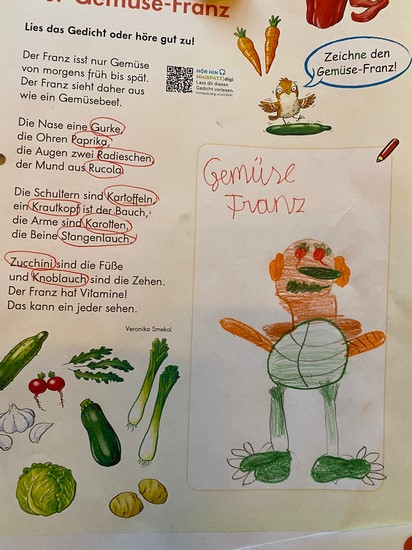 Gemüse-Franz
Lies das Gedicht oder höre gut zu!
Der Franz isst nur Gemüse
von morgens früh bis spät.
Der Franz sieht daher aus
wie ein Gemüsebeet.
HÖR HIN
Lass dir dieses
Gedicht vorlesen.
Zeichne den
Gemüse-Franz!
Die Nase eine Gurke,
die Ohren Paprika,
die Augen zwei Radieschen,
der Mund aus Rucola.
Die Schultern sind Kartoffeln,
ein Krautkopf ist der Bauch,
die Arme sind Karotten,
die Beine Stangenlauch.
Zucchini sind die Füße
und Knoblauch sind die Zehen.
Der Franz hat Vitamine!
Das kann ein jeder sehen.
Veronika Smekal
Gemüse
Franz